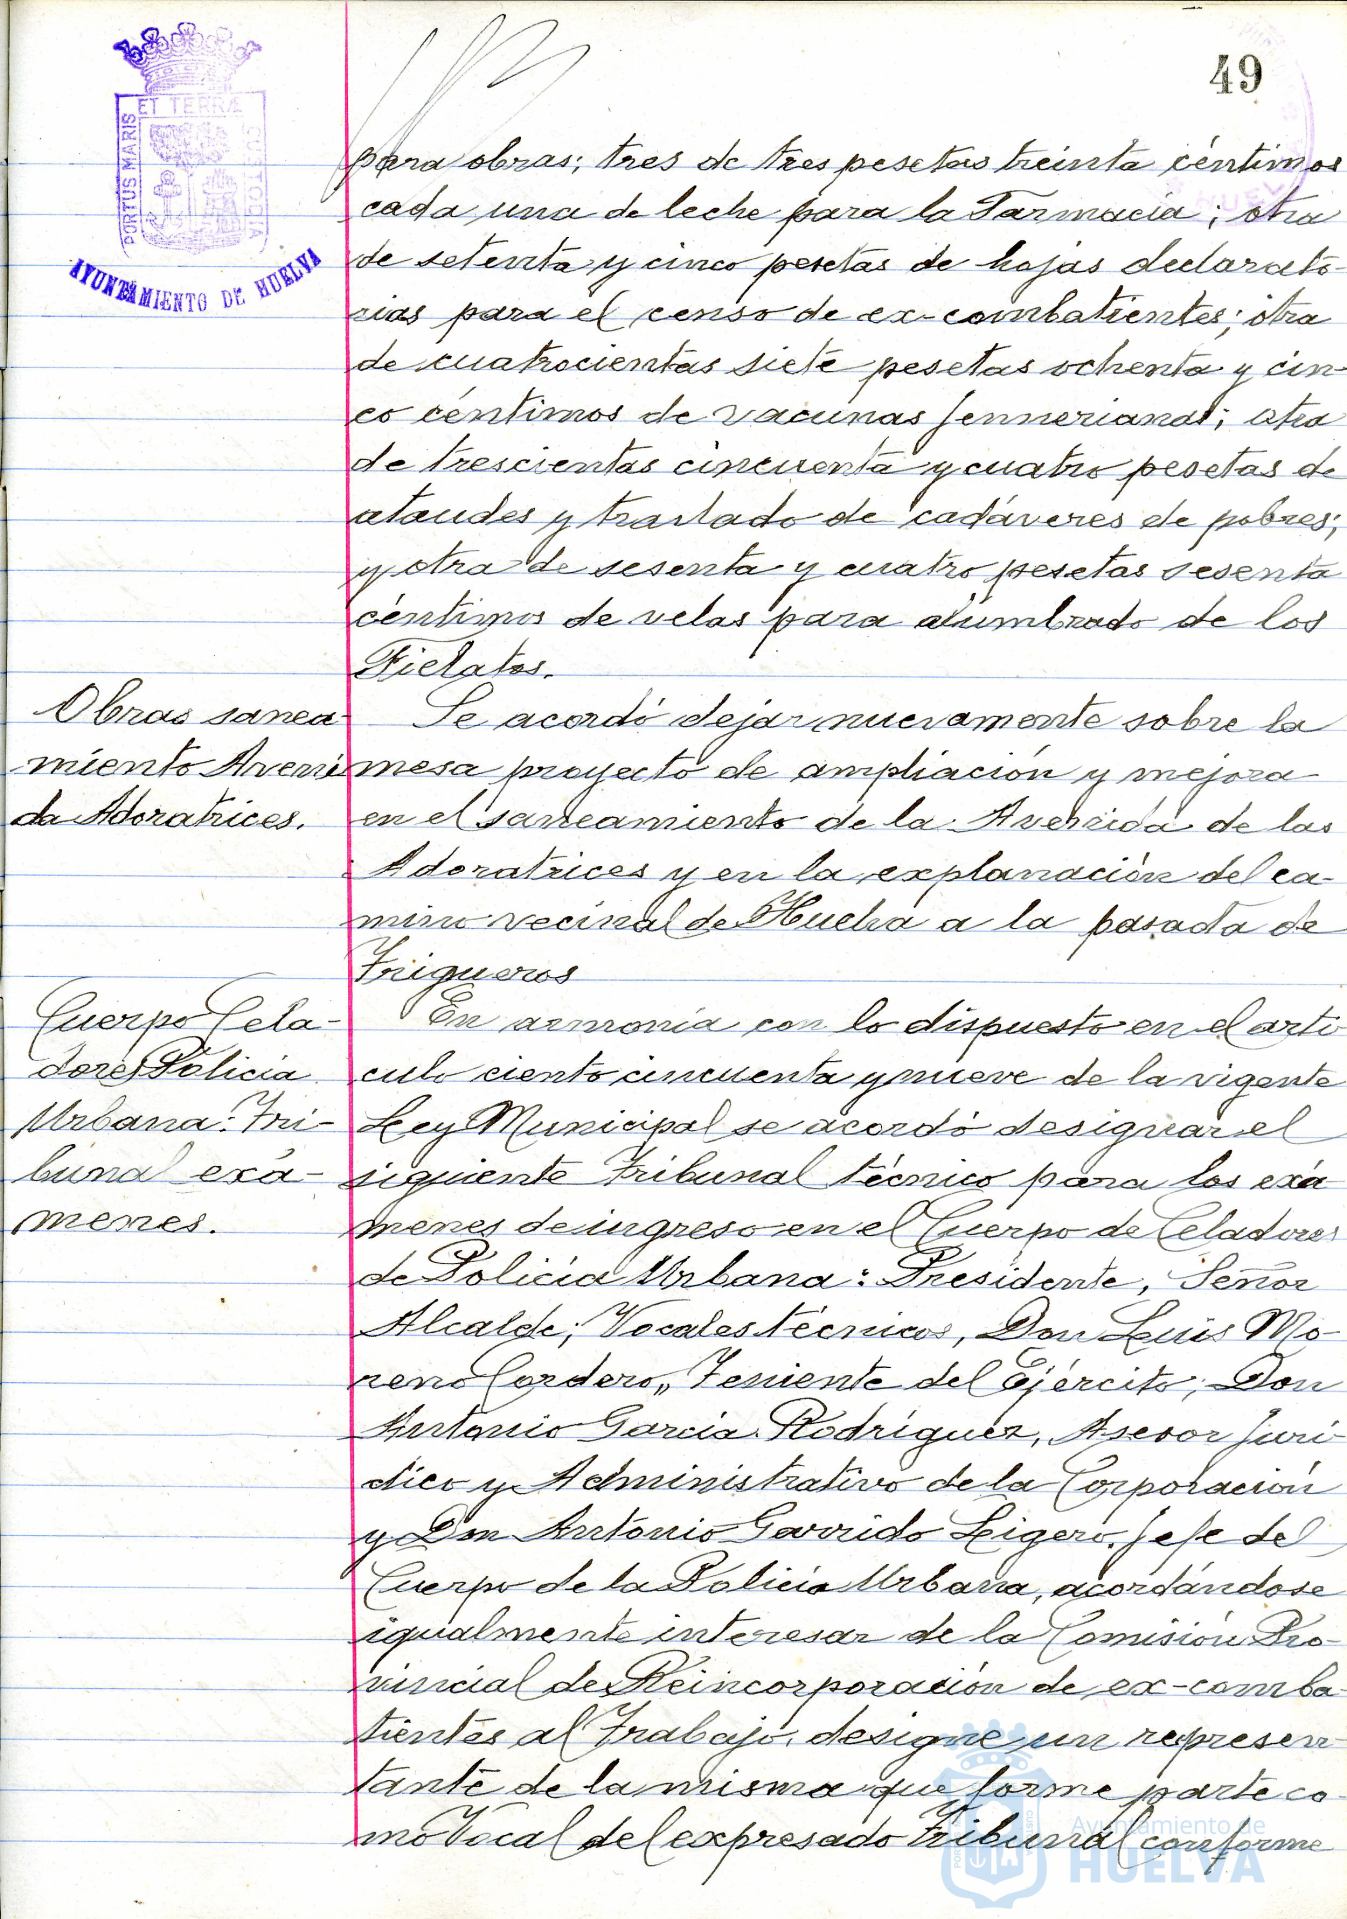 49
PORTUS MARIS ET TERRÆ CUSTODIA
AYUNTAMIENTO DE HUELVA
para obras; tres de tres pesetas treinta céntimos
cada una de leche para la Farmacia; otra
de setenta y cinco pesetas de hojas declarato-
rias para el censo de ex-combatientes; otra
de cuatrocientas siete pesetas ochenta y cin-
co céntimos de vacunas Jennerianas; otra
de trescientas cincuenta y cuatro pesetas de
ataudes y traslado de cadáveres de pobres;
y otra de sesenta y cuatro pesetas sesenta
céntimos de velas para alumbrado de los
Fielatos.
Obras sanea-
miento Aveni
da Adoratrices.
Se acordó dejar nuevamente sobre la
mesa proyecto de ampliación y mejora
en el saneamiento de la Avenida de las
Adoratrices y en la explanación del ca-
mino vecinal de Huelva a la pasada de
Trigueros
Cuerpo Cela-
dores Policía
Urbana: Tri-
bunal exá-
menes.
En armonía con lo dispuesto en el arti
culo ciento cincuenta y nueve de la vigente
Ley Municipal se acordó designar el
siguiente Tribunal técnico para los exá
menes de ingreso en el Cuerpo de Celadores
de Policía Urbana: Presidente, Señor
Alcalde; Vocales técnicos, Don Luis Mo-
reno Cordero, Teniente del Ejército; Don
Antonio García Rodríguez, Asesor Jurí-
dico y Administrativo de la Corporación
y Don Antonio Garrido Ligero, Jefe del
Cuerpo de la Policía Urbana, acordándose
igualmente interesar de la Comisión Pro-
vincial de Reincorporación de ex-comba-
tientes al Trabajo, designe un represen-
tante de la misma que forme parte co-
mo Vocal del expresado Tribunal conforme
Ayuntamiento de
HUELVA